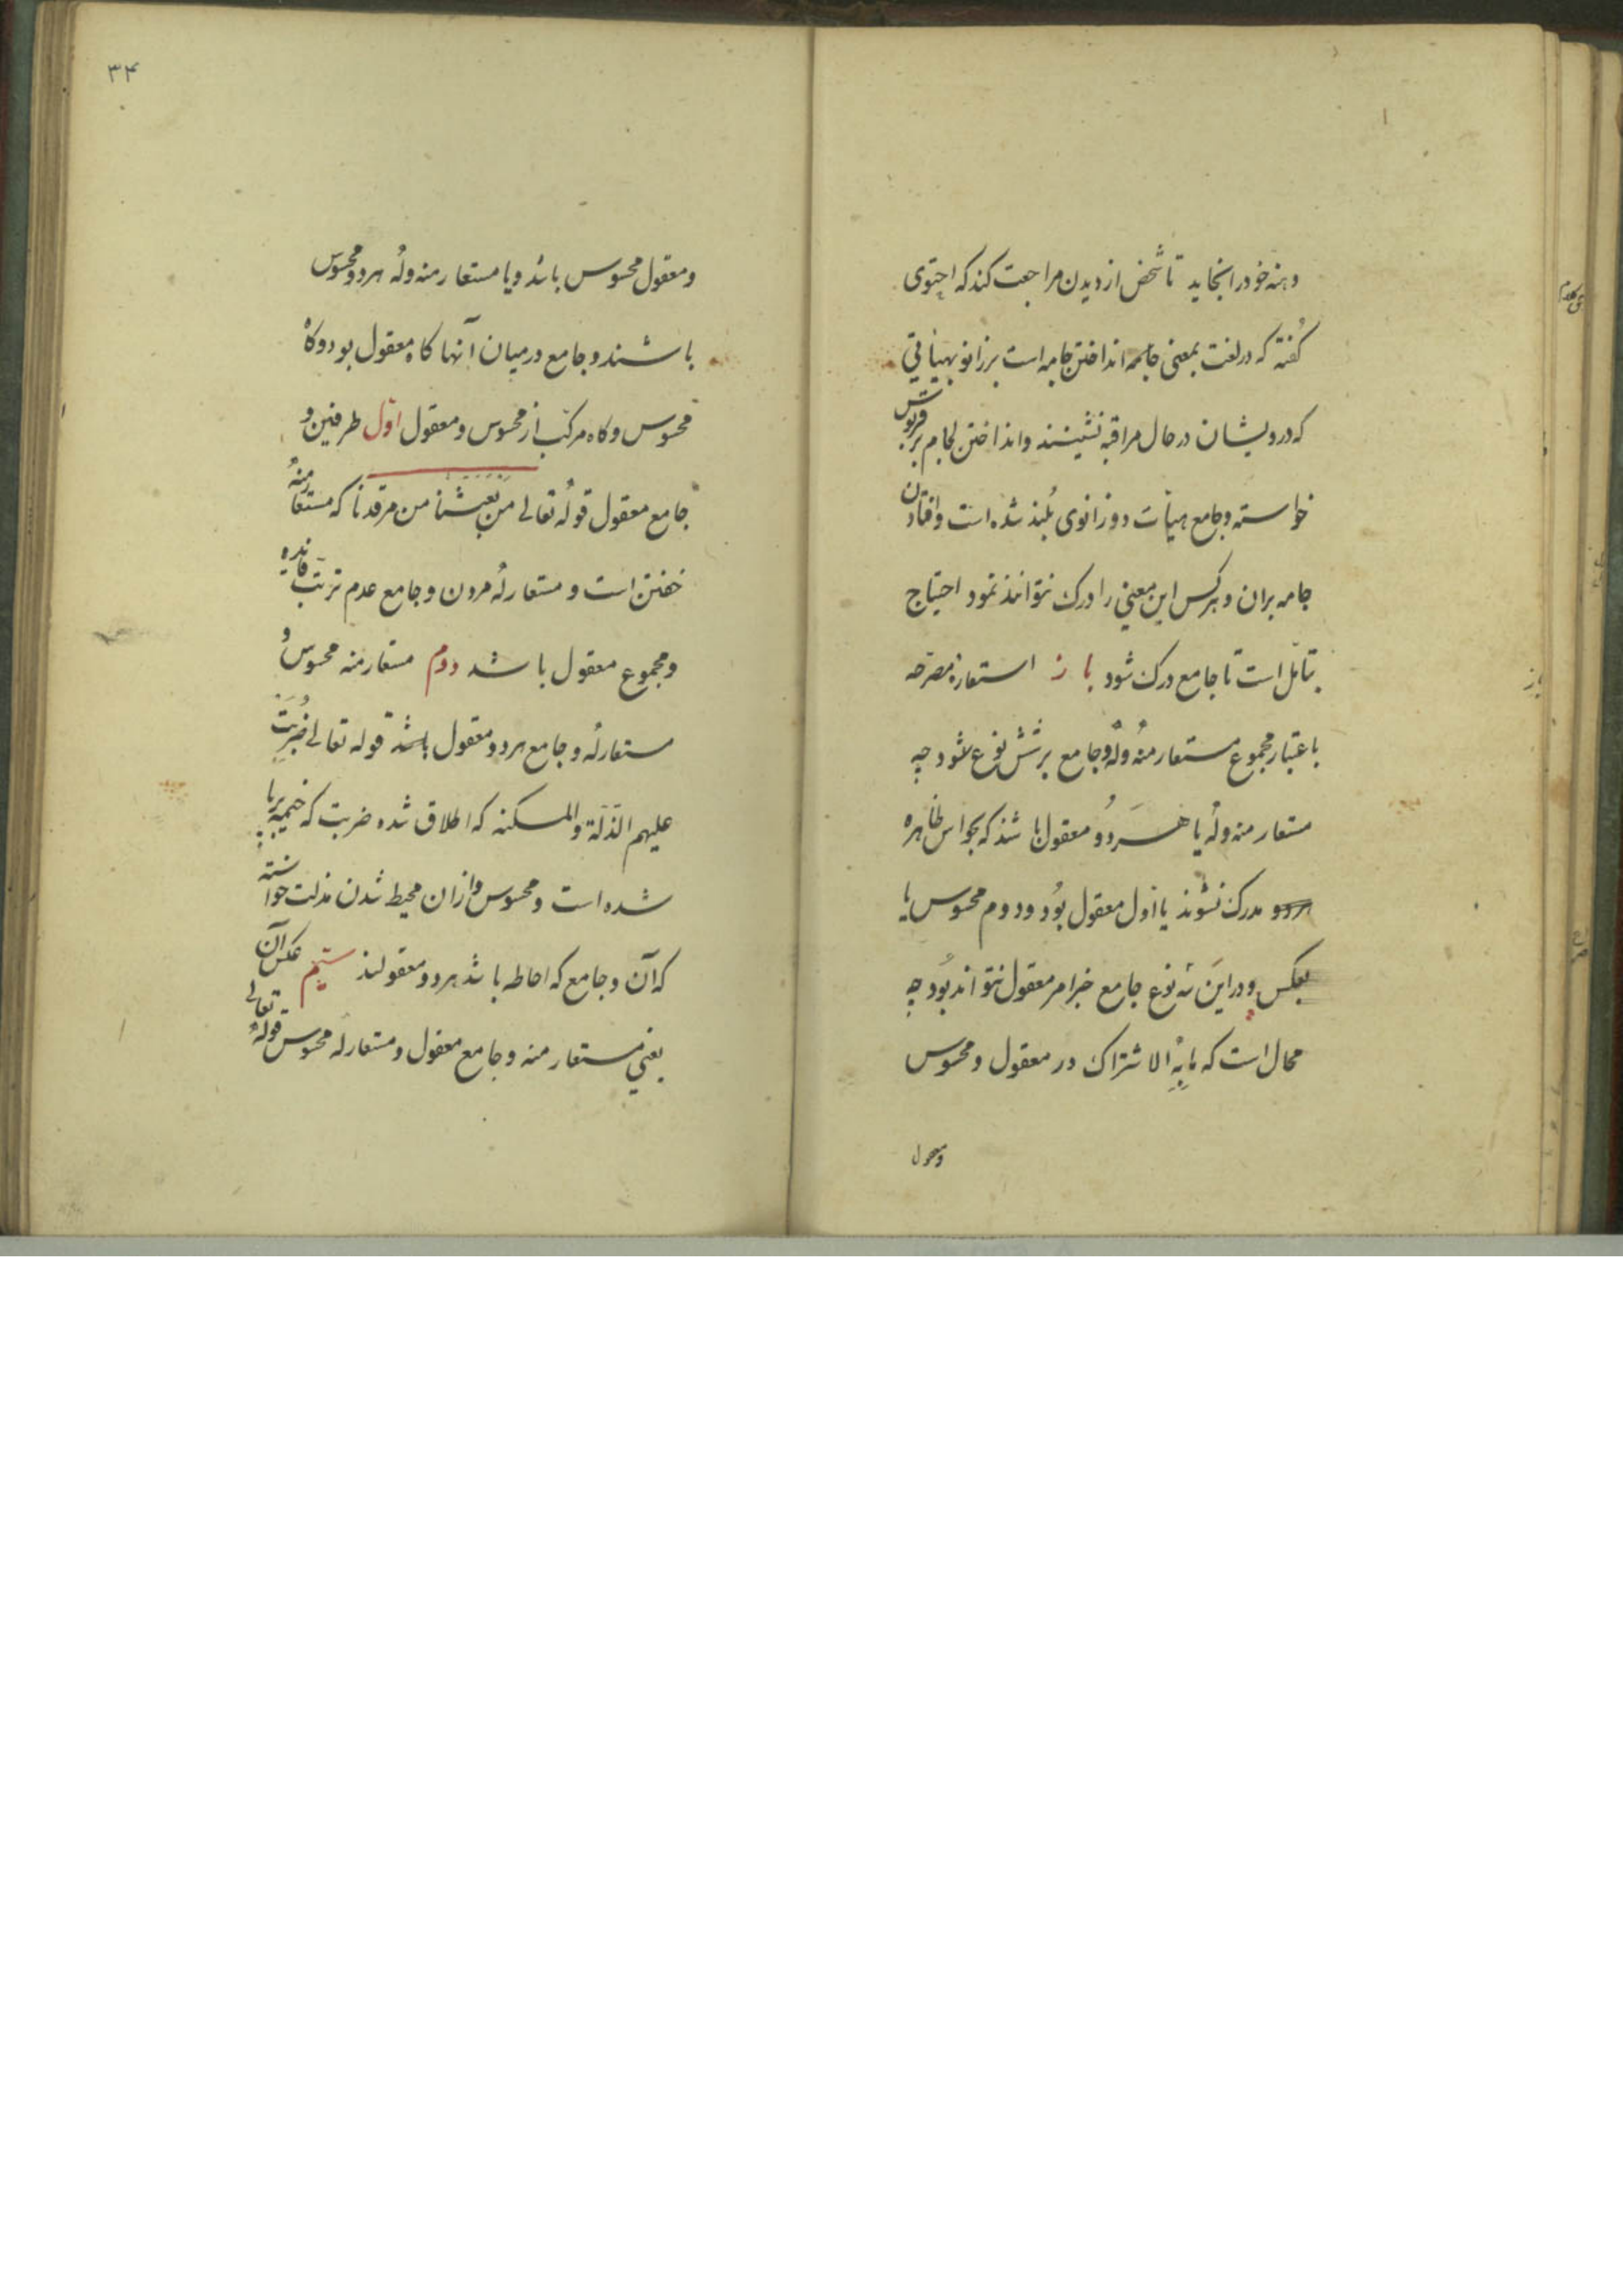 دهنه خود را بخاید تا شخص از دیدن مراجعت کند که احتوی
گفته که در لغت بمعنی جامه انداختن جامه است بر زانو بهیأتی
که درویشان در حال مراقبه نشینند و انداختن لجام بر قربوس
خواسته و جامع هیأت دو زانوی بلند شده است و افتادن
جامه بران و هر کس این معنی را درک نتوانند نمود احتیاج
بتأمل است تا جامع درک شود باز استعاره مصرحه
باعتبار مجموع مستعار منه وله و جامع بر شش نوع شود چه
مستعار منه وله یا هر دو معقول باشند که بحواس ظاهره
هر دو مدرک نشوند یا اول معقول بود و دوم محسوس یا
بعکس و در این سه نوع جامع جز امر معقول نتواند بود چه
محال است که مابه الاشتراک در معقول و محسوس
ومعقول
۳۴
ومعقول محسوس باشد ویا مستعار منه وله هر دو محسوس
باشند و جامع درمیان آنها کاه معقول بود و کاه
محسوس وکاه مرکب از محسوس ومعقول اوّل طرفین و
جامع معقول قوله تعالی من بعثنا من مرقدنا که مستعار منه
خفتن است و مستعار له مردن و جامع عدم ترتب فایده
ومجموع معقول باشد دوم مستعار منه محسوس و
مستعار له و جامع هر دو معقول باشد قوله تعالی ضربت
علیهم الذلة والمسکنه که اطلاق شده ضربت که خیمه برپا
شده است و محسوس و ازان محیط شدن مذلت خواسته
که آن و جامع که احاطه باشد هر دو معقولند سیم عکس آن
یعنی مستعار منه و جامع معقول و مستعار له محسوس قوله تعالی
باز